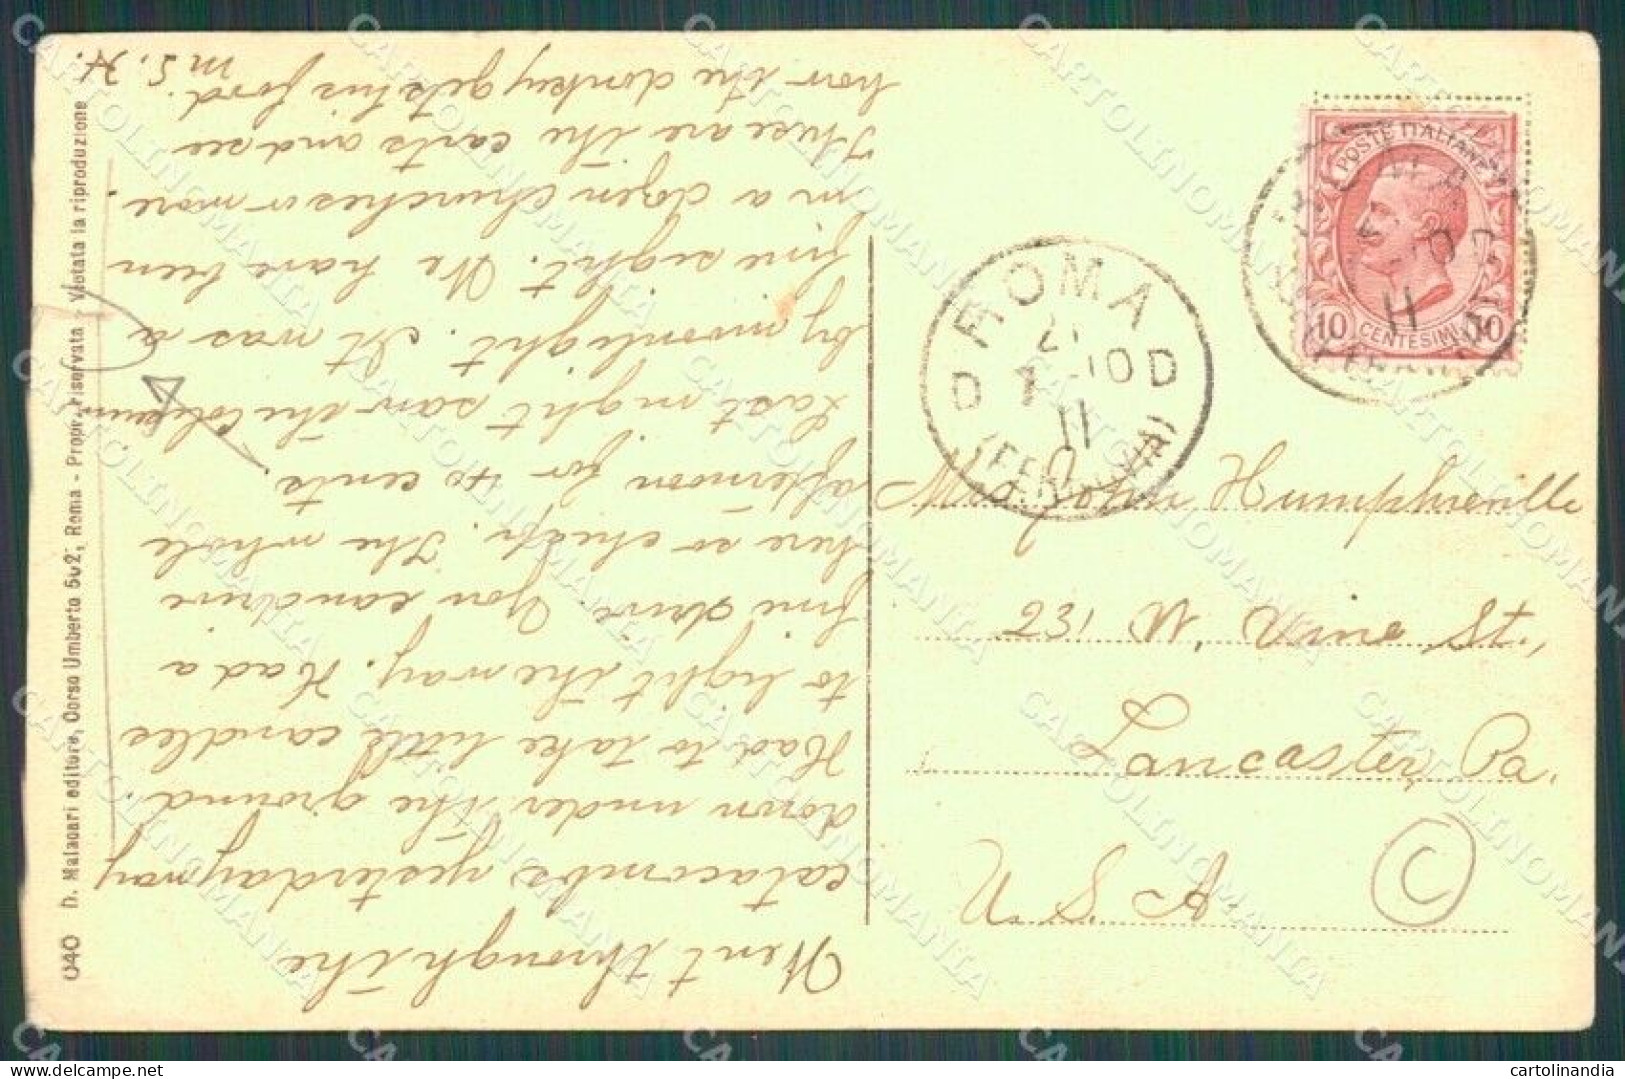 Went through the
catacombs yesterday way
down under the ground.
Had to take little candles
to light the way. Had a
fine drive. You can drive
here so cheap. The whole
afternoon for 40 cents.
Last night saw the Coliseum
by moonlight. It was a
fine sight. We have been
in a dozen churches or more.
These are the carts and see
how the donkey gets his food.
M S. H.
040 D. Malacari editore, Corso Umberto 502, Roma - Propr. riservata - Vietata la riproduzione
POSTE ITALIANE
10 CENTESIMI 10
11
ROMA
21
D 1 -10 D
11
(FERROVIA)
John Humphreville
231 W. Vine St.,
Lancaster, Pa.
U. S. A.
C
CARTOLINOMANIA
cartolinandia